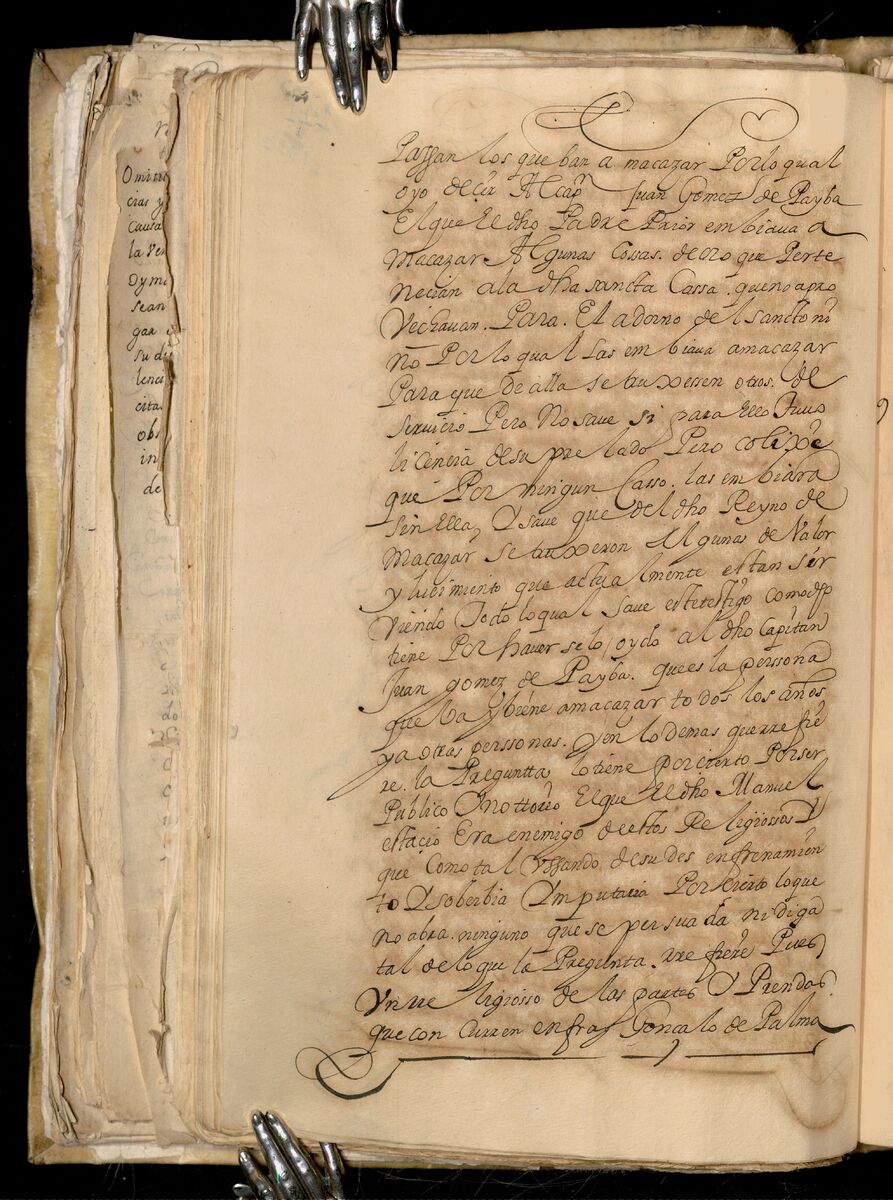 Omissi
cias y
Causa
la Ven
Dymi
sean
gar
su di
lenc
cita
obs
in
de
Passan los que ban a macazar Por lo qual
oyo deçir Al capn Juan Gomez de Payba
El que El dho Padre Prior embiaua a
Macazar Algunas Cossas. de oro que Perte
Necian a la dha sancta Cassa. que no apro
Vechauan. Para. El adorno del sancto ni
ño Por lo qual las embiaua a macazar
Para que de alla se truxessen otros. de
seruicio Pero No saue si para Ello Tuuo
licencia de su prelado Pero colixe
que Por ningun Casso. las embiara
sin Ella, Y saue que del dho Reyno de
Macazar se truxeron Algunas de Valor
y lucimiento que actualmente estan sir
viendo Todo lo qual saue este testigo como dho
tiene Por hauerselo oydo al dho Capitan
Juan gomez de Payba. que es la perssona
que ba y biene a macazar todos los años
y a otras perssonas. Y en lo demas que rrefie
re. la Pregunta lo tiene por cierto Por ser
Publico Y nottorio El que El dho Manuel
estacio Era enemigo de estos Religiossos Y
que Como tal Vssando de su desenfrenamien
to Y soberbia Ymputaria Por cierto lo que
No abra. ninguno que se persuada ni diga
tal de lo que la Pregunta. rrefiere Pues
Vn rreligiosso de las partes Y Prendas
que concurren en fray Goncalo de Palma